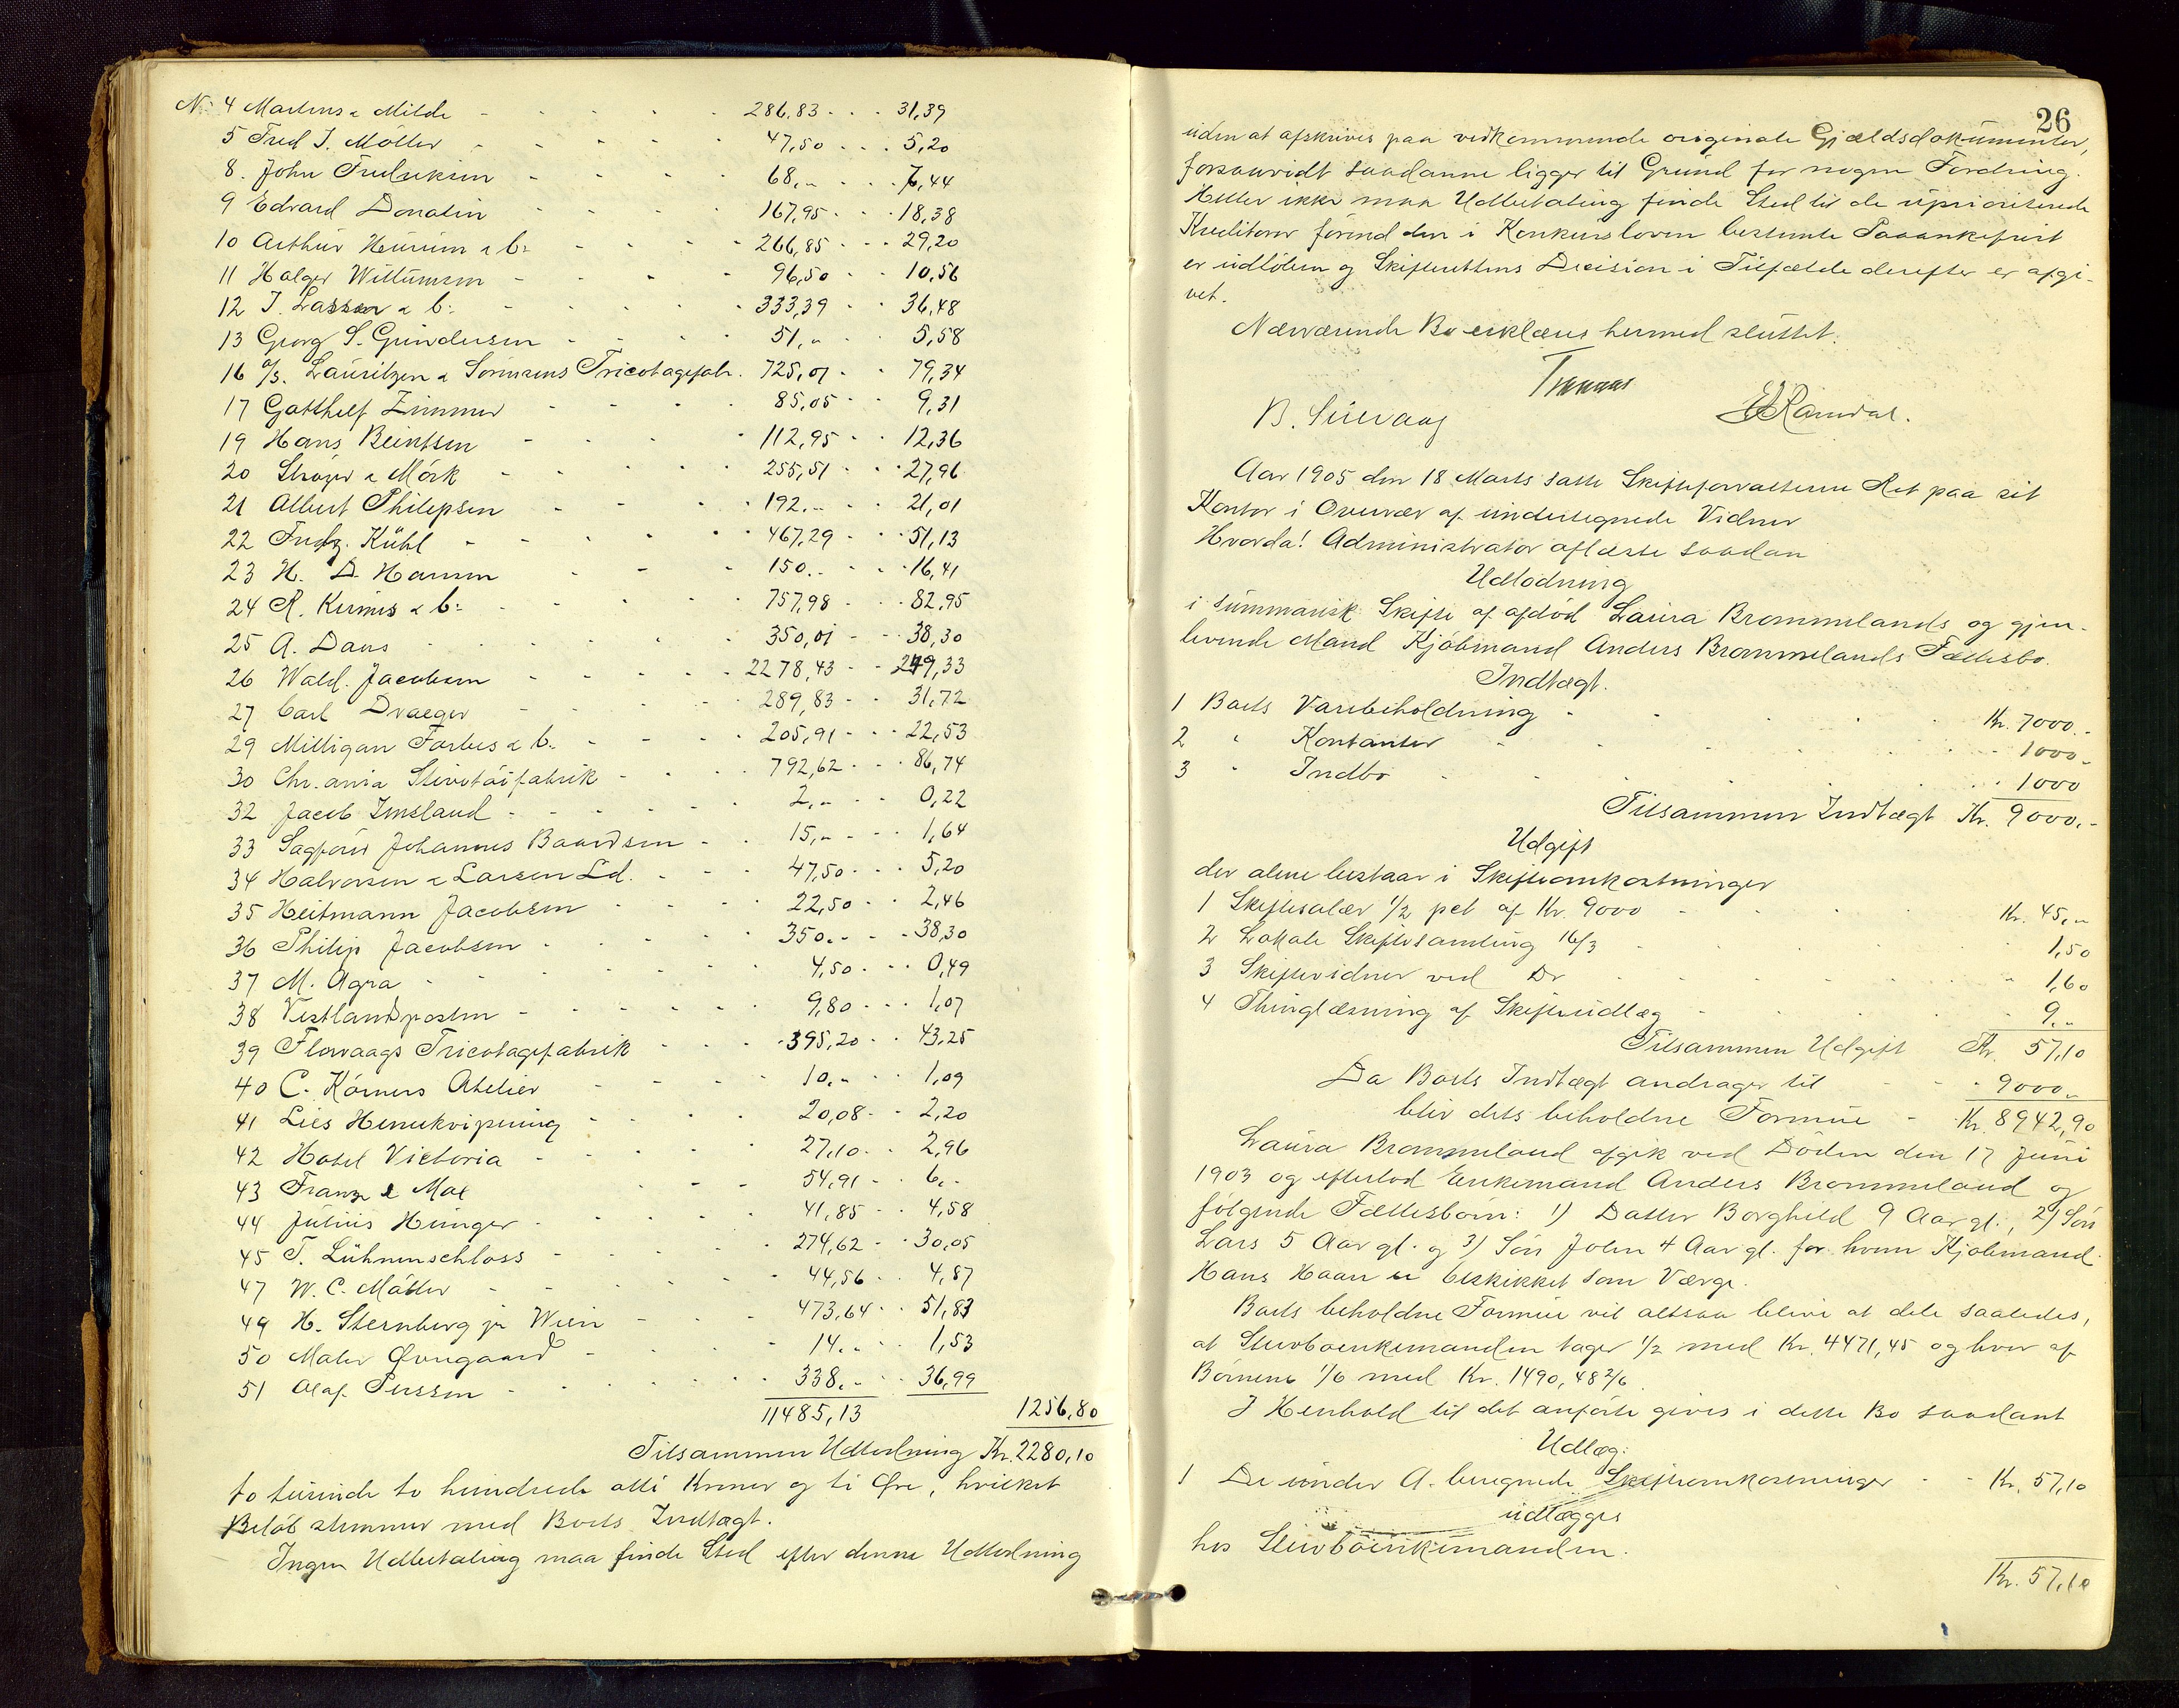 No 4 Martens & Milde - - - 286,83 - - 31,39
5 Fred J. Möller - - - 47,50 - - 5,20
8. John Fredriksen - - - 68,„ - - 7,44
9 Edvard Donalin - - - 167,95 - - 18,38
10 Arthur Heurum & Co: - - - 266,85 - - 29,20
11 Holger Willumsen - - - 96,50 - - 10,56
12 J. Lassen & Co: - - - 333,39 - - 36,48
13 Georg S. Gundersen - - - 51,„ - - 5,58
16 A/S. Lauritzen & Sørensens Tricotagefabr. 725,01 - - 79,34
17 Gotthelf Zimmer - - - 85,05 - - 9,31
19 Hans Beintsen - - - 112,95 - - 12,36
20 Strøyer & Mörk - - - 255,51 - - 27,96
21 Albert Philipsen - - - 192.- - - 21,01
22 Kühl - - - 467,29 - - 51,13
23 H. D. Hansen - - - 150.. - - 16,41
24 R. & Co: - - - 757,98 - - 82,95
25 A. Daus - - - 350,01 - - 38,30
26 Wald. Jacobsen - - - 2278,43 - - 249,33
27 Carl Draeger - - - 289,83 - - 31,72
29 Milligan Forbes & Co. - - - 205,91 - - 22,53
30 Chr.ania Skrivetøifabrik - - - 792,62 - - 86,74
32 Jacob Imsland - - - 2,„ - - 0,22
33 Sagfører Johannes Baardsen - - 15,„ - - 1,64
34 Halvorsen & Larsen Ld. - - - 47,50 - - 5,20
35 Heitmann Jacobsen - - - 22,50 - - 2,46
36 Philip Jacobsen - - - 350.- - - 38,30
37 M. Agra - - - 4,50 - - 0,49
38 Vestlandsposten - - - 9,80 - - 1,07
39 Florvaags Tricotagefabrik - - - 395,20 - - 43,25
40 C. Körners Atelier - - - 10,„ - - 1,09
41 Lies - - - 20,08 - - 2,20
42 Hotel Victoria - - - 27,10 - - 2,96
43 Franz & Mal - - - 54,91 - - 6,-
44 Julius Hunger - - - 41,85 - - 4,58
45 F. Lühnenschloss - - - 274,62 - - 30,05
47 W. C. Möller - - - 44,56 - - 4,87
49 H. Sternberg jr Wien - - - 473,64 - - 51,83
50 Maler Øvregaard - - - 14.. - - 1,53
51 Olaf Perssen - - - 338.- - - 36,99
11485,13 1256,80
Tilsammen Udlodning Kr. 2280,10
to tusinde to hundrede otti Kroner og ti Øre, hvilket
Beløb stemmer med Boets Indtægt.
Ingen Udbetaling maa finde Sted efter denne Udlodning
26
uden at afskrives paa vedkommende originale Gjældsdokumenter,
forsaavidt saadanne ligger til Grund for nogen Fordring.
Heller ikke maa Udbetaling finde Sted til de uprioriterede
Kreditorer førend den i Konkursloven bestemte Paaankefrist
er udløben og Skifterettens Decision i Tilfælde derefter er afgi-
vet.
Nærværende Bo erklæres hermed sluttet.
B. Suevaag
Aar 1905 den 18 Marts satte Skifteforvalteren Ret paa sit
Kontor i Overvær af undertegnede Vidner
Hvorda! Administrator aflæste saadan
Udlodning
i summarisk Skifte af afdød Laura Brommelands og gjen-
levende Mand Kjøbmand Anders Brommelands Fællesbo.
Indtægt.
1 Boets Varebeholdning - - - Kr. 7000.-
2 " Kontanter - - - 1000„
3 " Indbo - - - 1000
Tilsammen Indtægt Kr. 9000.-
Udgift
der alene bestaar i Skifteomkostninger
1 Skiftesalær 1/2 pct af Kr. 9000 - - - Kr. 45,„
2 Lokale Skiftesamling 16/3 - - - 1,50
3 Skiftevidner ved Do - - - 1,60
4 Thinglæsning af Skifteudlæg - - - 9,„
Tilsammen Udgift Kr. 57,10
Da Boets Indtægt andrager til - - - 9000„
blir dets beholdne Formue - Kr. 8942,90
Laura Brommeland afgik ved Døden den 17 Juni
1903 og efterlod Enkemand Anders Brommeland og
følgende Fællesbørn: 1) Datter Borghild 9 Aar gl., 2) Søn
Lars 5 Aar gl. og 3) Søn John 4 Aar gl. for hvem Kjøbmand
Hans Haan er beskikket som Værge.
Boets beholdne Formue vil altsaa blive at dele saaledes,
at Stervboenkemanden tager 1/2 med Kr. 4471,45 og hver af
Børnene 1/6 med Kr. 1490,48 2/6
I Henhold til det anførte gives i dette Bo saadant
Udlæg:
1 De under A. beregnede Skifteomkostninger - - Kr. 57,10
udlægges
hos Stervboenkemanden.
Kr. 57,10